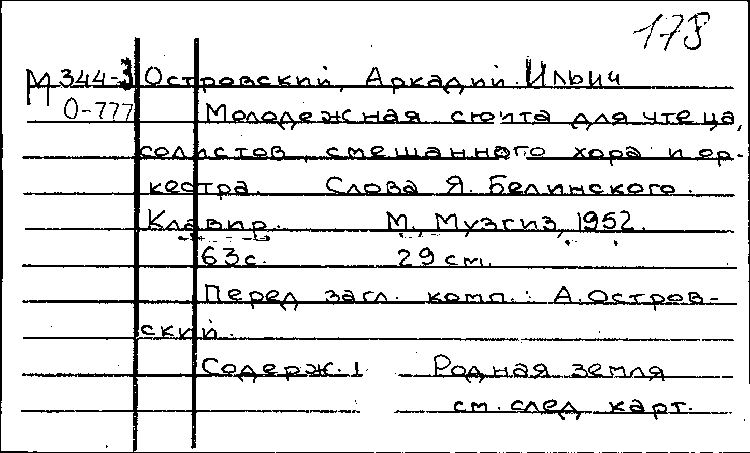 178
М 344-3 Островский, Аркадий Ильич
О-777 Молодежная сюита для чтеца,
солистов, смешанного хора и ор-
кестра. Слова Я. Белинского.
Клавир. М., Музгиз, 1952.
63с. 29 см.
Перед загл. комп.: А. Остров-
ский.
Содерж. 1 Родная земля
см. след карт.